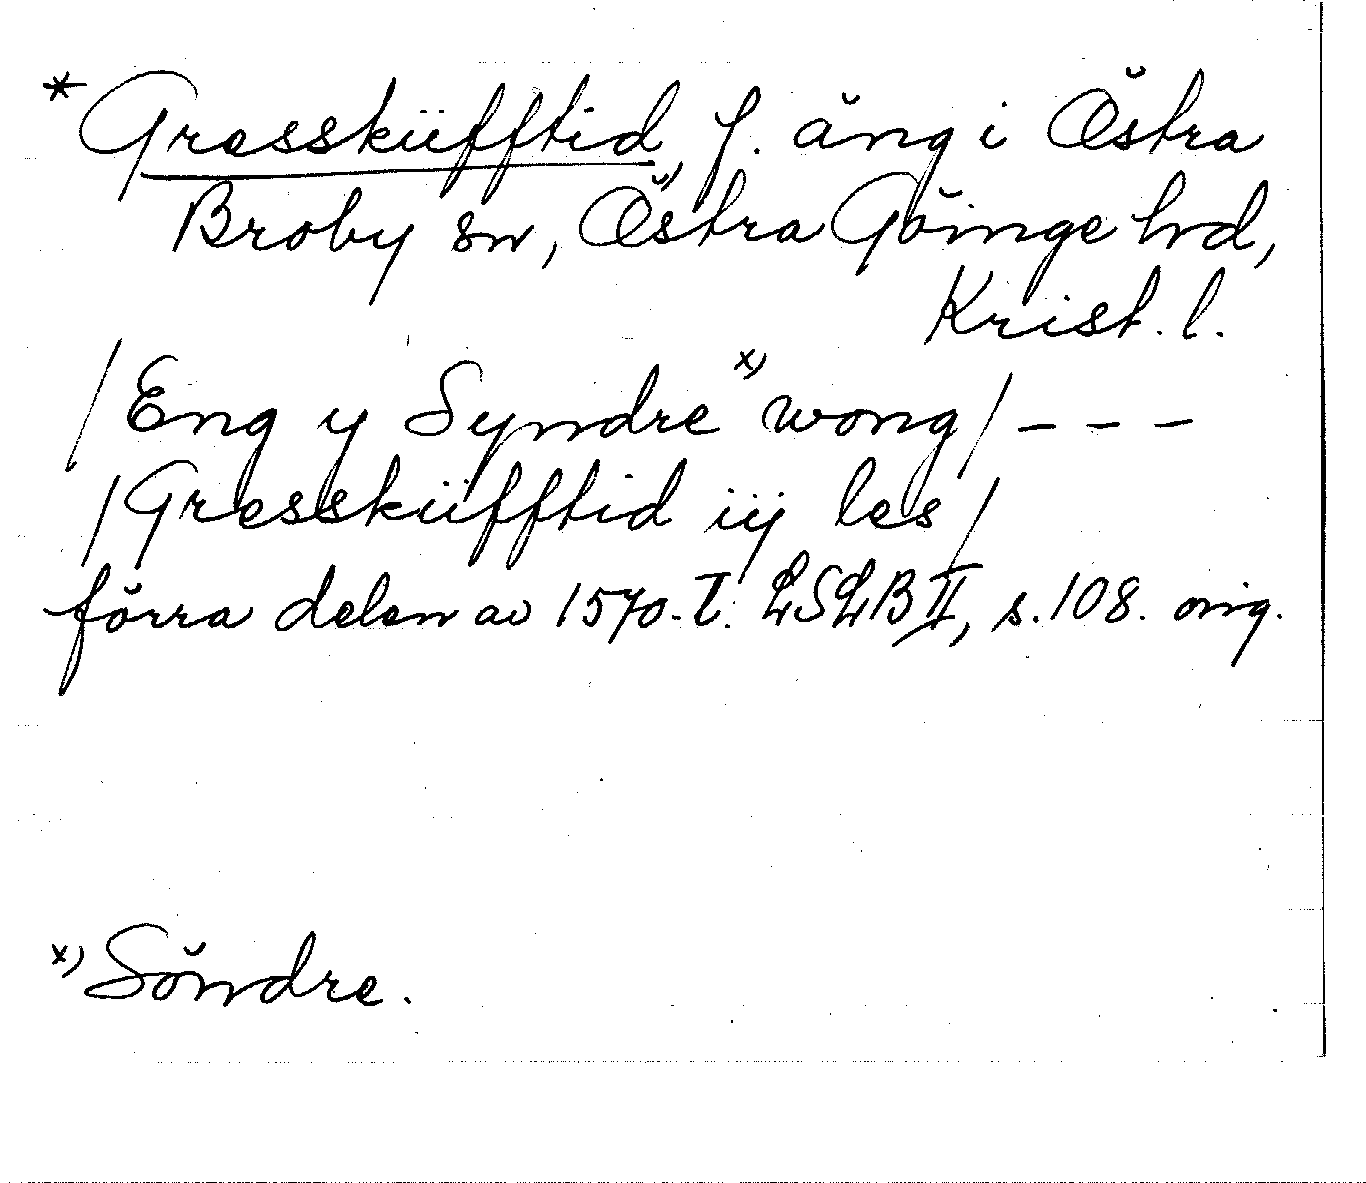 *Gresskufftid, f. äng i Östra
Broby sn, Östra Göinge hd,
Krist. l.
/Eng y Syndre x) wong/ - - -
/Gresskufftid iij les/
förra delen av 1570-t. LSLB II, s. 108. orig.
x) Söndre.